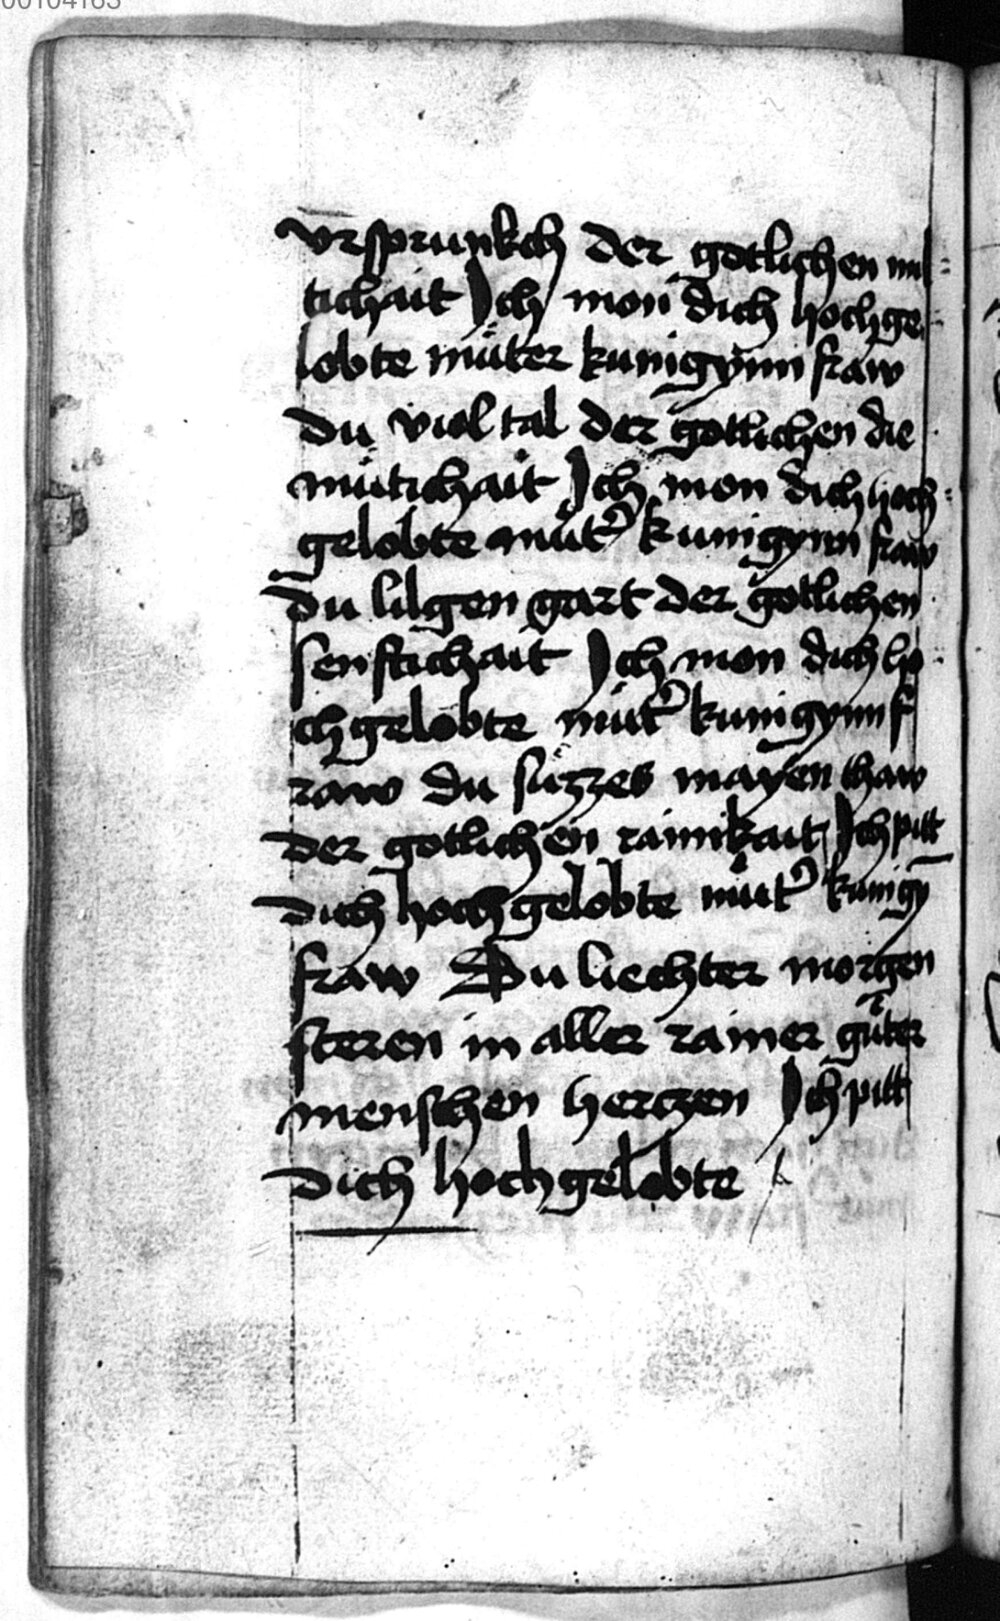 00104163
vrsprunkch der gotlichen mil
tichait Ich mon dich hochge
lobte muͤter kunigynn fraw
du viol tal der gotlichen die
muͤtichait Ich mon dich hoch
gelobte muͤtͤ kunigynn fraw
du lilgen gart der gotlichen
senftichait Ich mon dich ho
chgelobte mut᾽ kunigynn f
raw du suzzes mayen thaw
der gotlichen rainikait Ich pitt
dich hochgelobte muͤt᾽ kunigȳ
fraw Du liechter morgen
steren in aller rainer guͤter
menschen herczen Ich pitt
dich hochgelobte